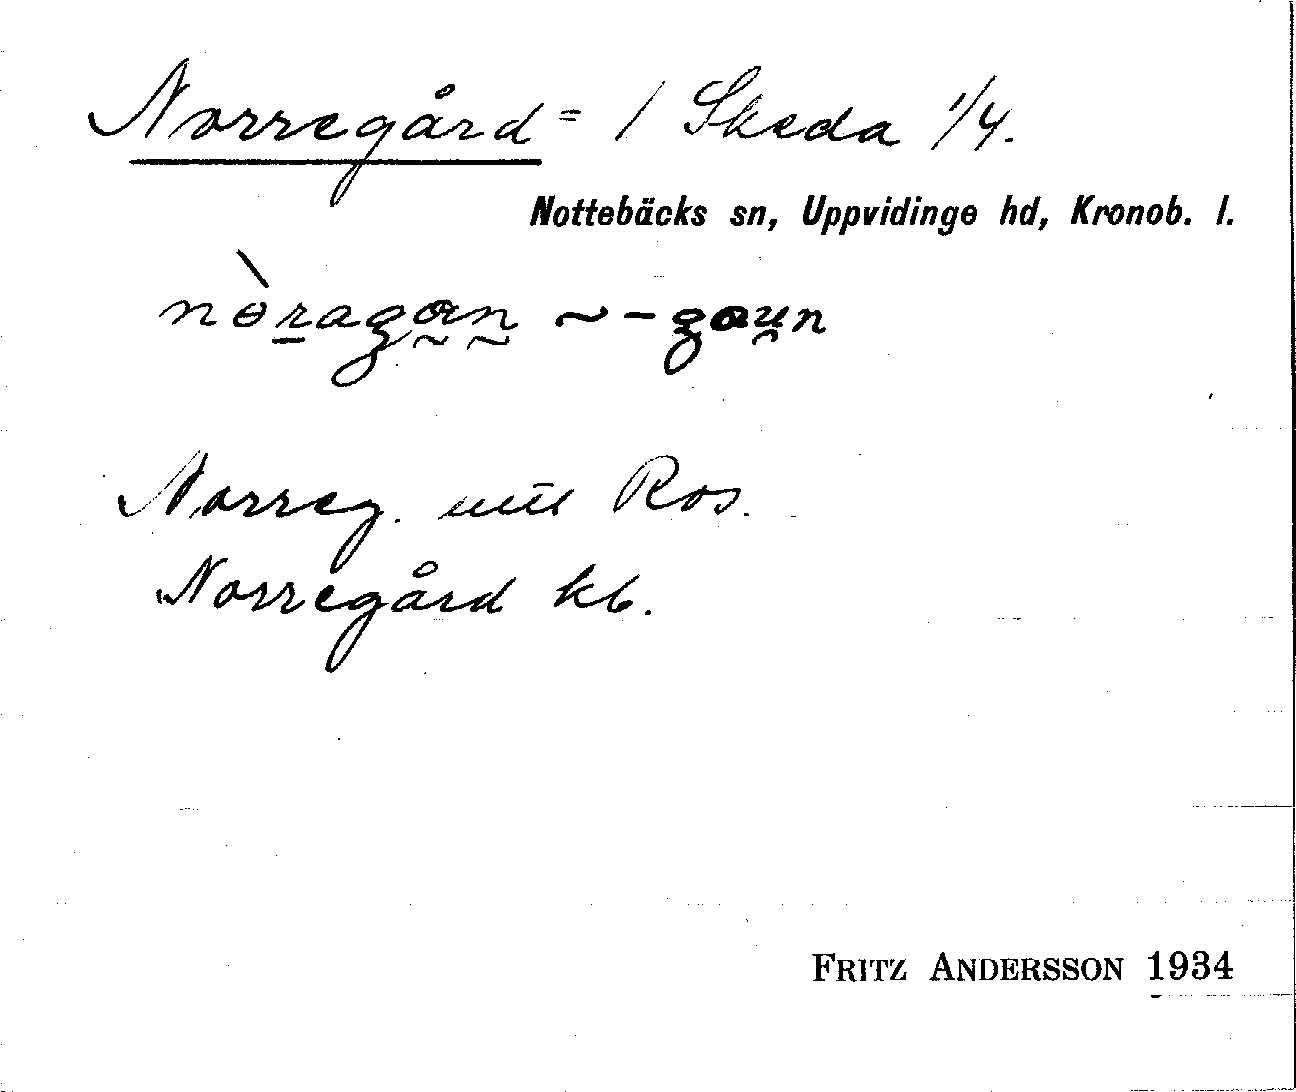 Norregård = 1 Skeda 1/4.
Nottebäcks sn, Uppvidinge hd, Kronob. l.
nɵ̀ragan ~ -gaun
Norreg. Ros.
Norregård kb.
FRITZ ANDERSSON 1934